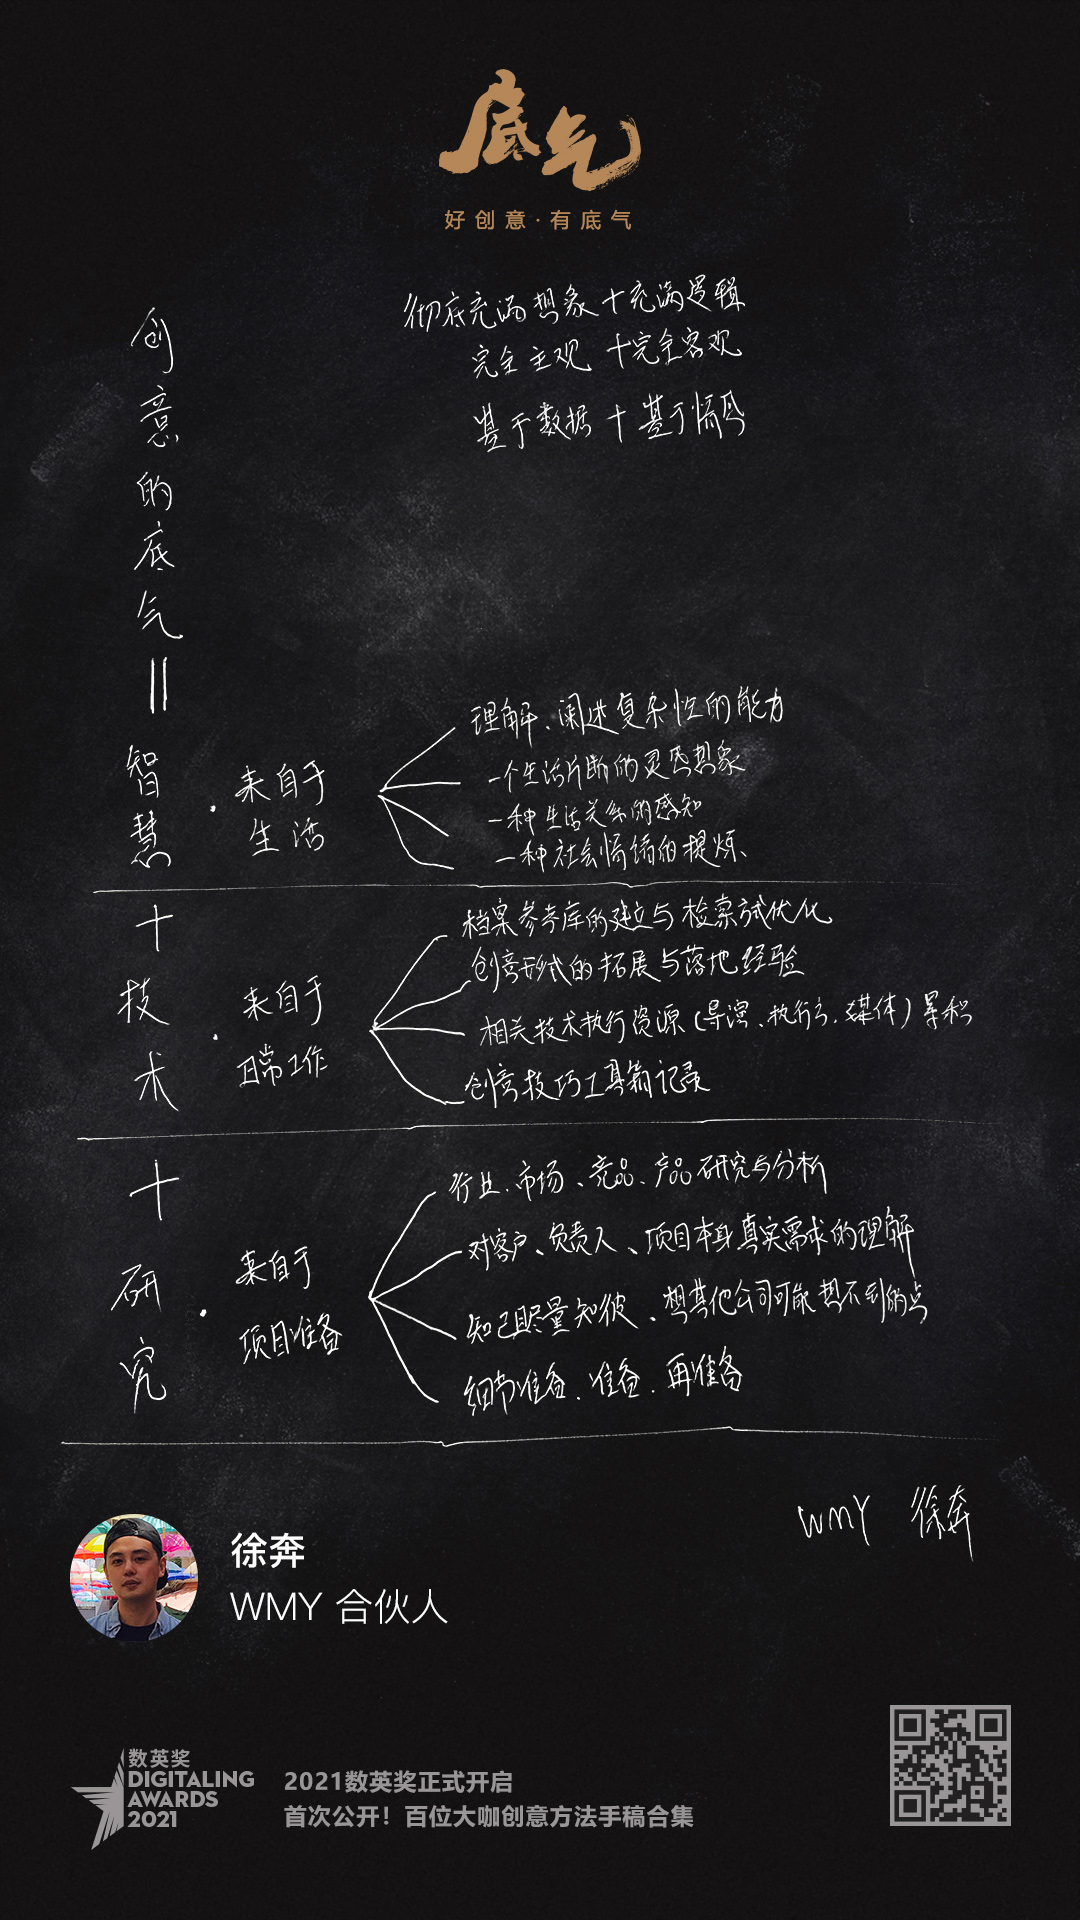 底气
好创意·有底气
彻底充满想象+充满逻辑
完全主观 +完全客观
基于数据+基于情感
创意的底气=智慧+技术+研究
·来自于
生活
理解、阐述复杂性的能力
一个生活片断的灵感想象
一种生活关系的感知
一种社会情绪的提炼、
·来自于
日常工作
档案参考库的建立与检索式优化
创意形式的拓展与落地经验
相关技术执行资源(导演、执行、媒体)累积
创意技巧工具箱记录
·来自于
项目准备
行业、市场、竞品、产品研究与分析
对客户、负责人、项目本身真实需求的理解
知己尽量知彼、想其他公司可能想不到的点
细节准备、准备、再准备
WMY 徐奔
徐奔
WMY 合伙人
数英奖
DIGITALING
AWARDS
2021
2021数英奖正式开启
首次公开！百位大咖创意方法手稿合集